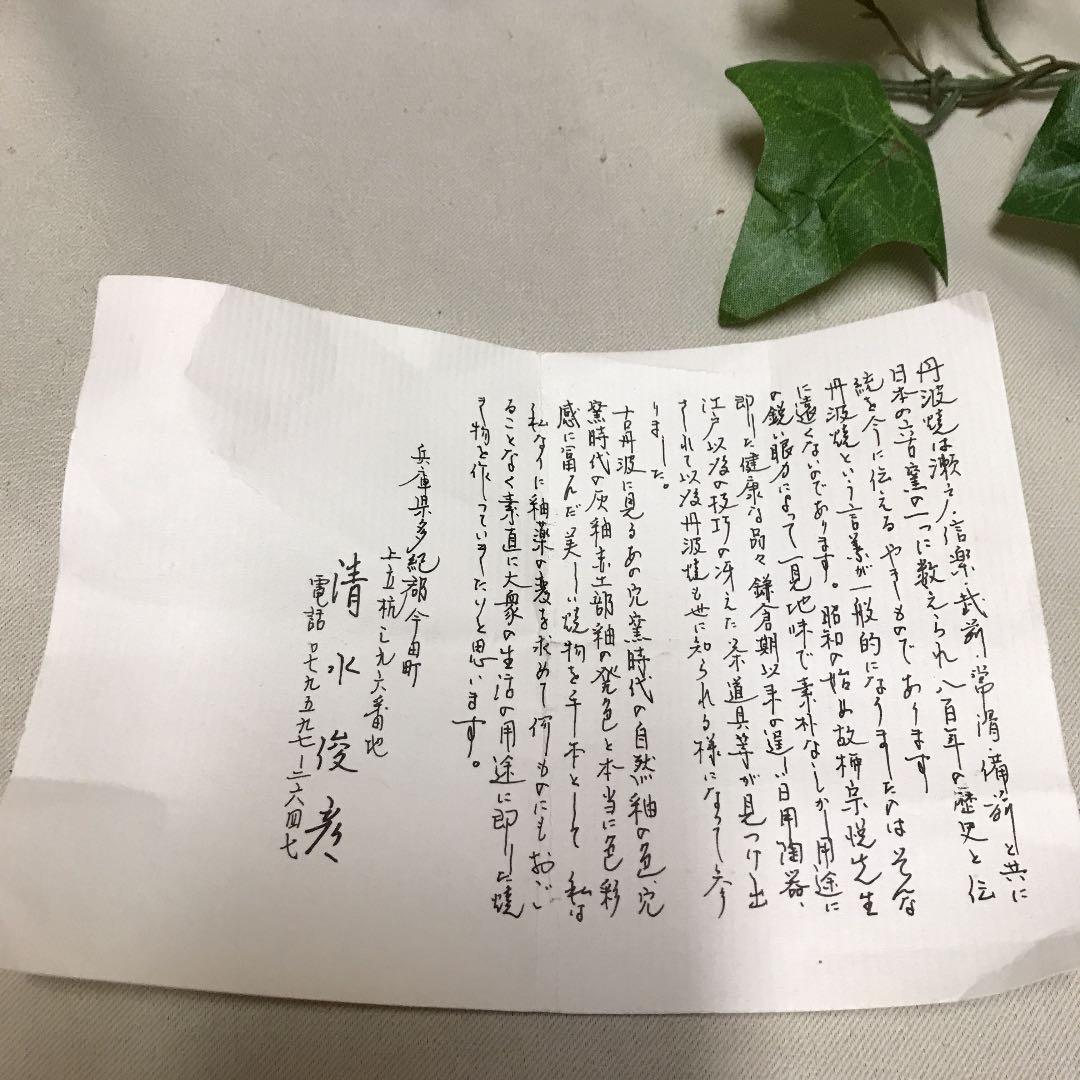 丹波焼は瀬戸・信楽・武前・常滑・備前と共に
日本の六古窯の一つに数えられ八百年の歴史と伝
統を今に伝えるやきものであります
丹波焼という言葉が一般的になりましたのはそんな
に遠くないのであります。昭和の始め故柳宗悦先生
の鋭い眼力によって一見地味で素朴なしかし用途に
即した健康な品々鎌倉期以来の逞しい日用陶器、
江戸以後の技巧の冴えた茶道具等が見つけ出
されて以後丹波焼も世に知られる様になって参
りました。
古丹波に見るあの穴窯時代の自然釉の色、穴
窯時代の灰釉赤土部釉の発色と本当に色彩
感に富んだ美しい焼物を手本として私は
私なりに釉薬の変を求めて何ものにもおごい
ることなく素直に大衆の生活の用途に即した焼
き物を作っていきたいと思います。
兵庫県多紀郡今田町
上立杭三九六番地
清水俊彦
電話〇七九五九七-二六四七